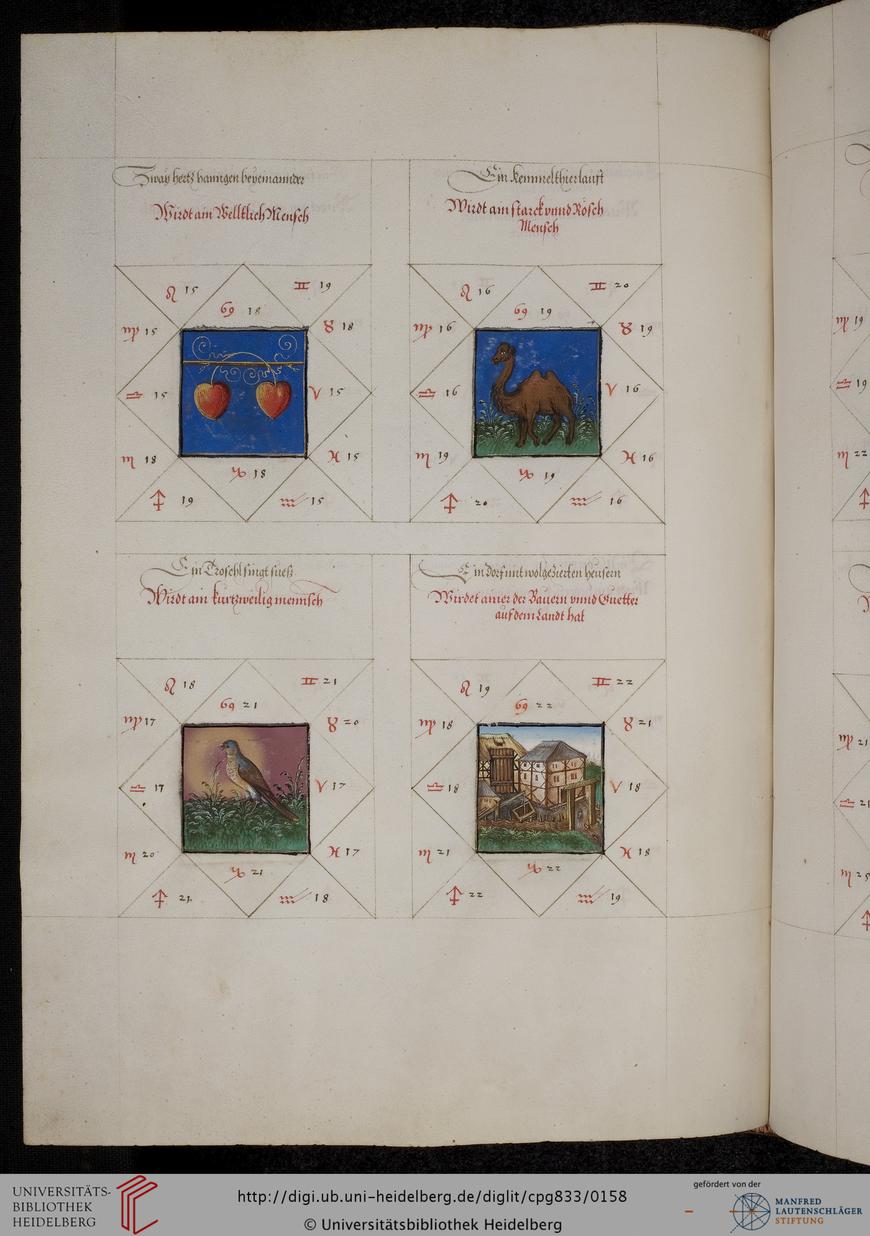 Zway hertz hanngen beyeinannder
Wirdt ain Welltlich Mensch
♌ 15
♊ 19
♋ 18
♍ 15
♉ 18
♎ 15
♈ 15
♏ 18
♓ 15
♑ 18
♐ 19
♒ 15
Ein Kemmelthier laufft
Wirdt am starck vnnd Rösch
Mensch
♌ 16
♊ 20
♋ 19
♍ 16
♉ 19
♎ 16
♈ 16
♏ 19
♓ 16
♑ 19
♐ 20
♒ 16
Ein Troschl singt suess
Wirdt ain kurtzweilig mennsch
♌ 18
♊ 21
♋ 21
♍ 17
♉ 20
♎ 17
♈ 17
♏ 20
♓ 17
♑ 21
♐ 21
♒ 18
Ein dorf mit wolgezierten heusern
Wirdet ainer der Bauern vnnd Guetter
auf dem Landt hat
♌ 19
♊ 22
♋ 22
♍ 18
♉ 21
♎ 18
♈ 18
♏ 21
♓ 18
♑ 22
♐ 22
♒ 19
♍ 19
♎ 19
♏ 22
♍ 21
♎ 21
♏ 25
UNIVERSITÄTS-
BIBLIOTHEK
HEIDELBERG
http://digi.ub.uni-heidelberg.de/diglit/cpg833/0158
© Universitätsbibliothek Heidelberg
gefördert von der
MANFRED
LAUTENSCHLÄGER
STIFTUNG